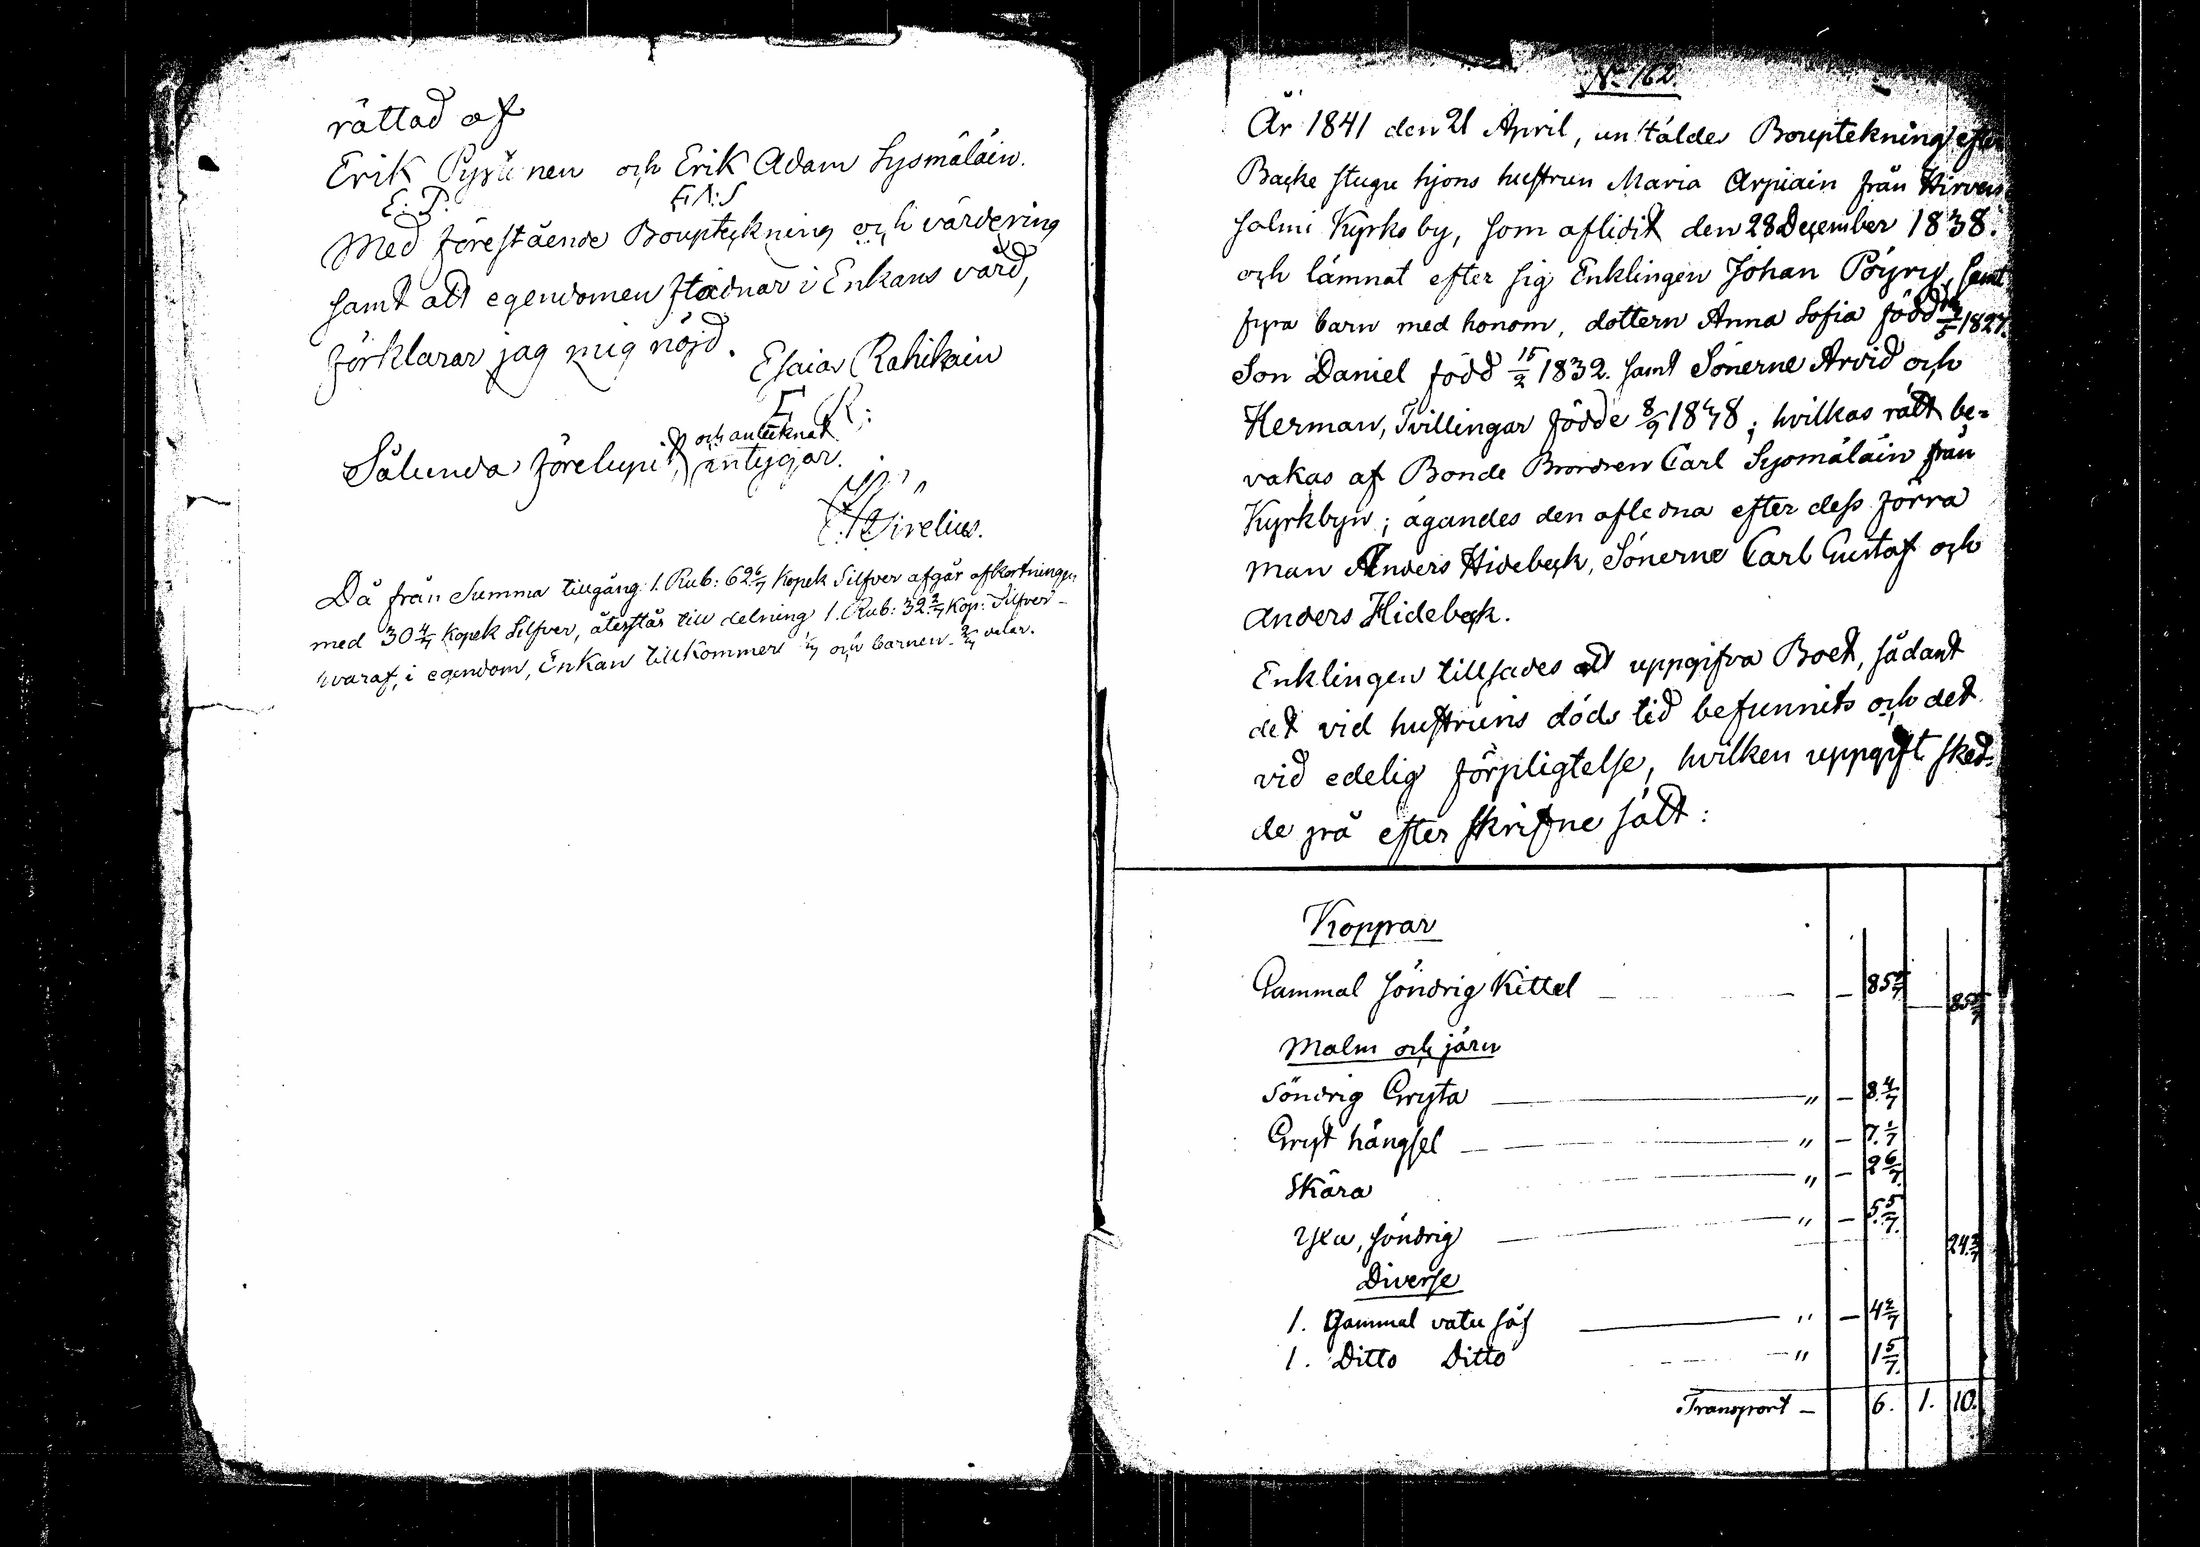 rättad af
Erik Pysünen och Erik Adam Sysmäläin.
E. P. E. A. S
Med förestående Boupteckning och värdering
samt att egendomen stadnar i Enkans vård,
förklarar jag mig nöjd.
Esaias Rahikain
E R:
Sålunda förelupit, och antecknat
intygar.
Sirelius.
Då från Summa tillgång 1. Rub: 62 6/7 Kopek Silfver afgår afkortningen
med 30 4/7 Kopek Silfver, återstår till delning 1. Rub: 32 2/7 Kop: Silfver
hvaraf, i egendom, Enkan tillkommer 1/3 och barnen 2/3 delar.
No 162.
År 1841 den 21 April, anstäldes Bouptekning efter
Backe stugu hjons hustrun Maria Arpiain från Hirvens
salmi Kyrko by, som aflidit den 28 December 1838.
och lämnat efter sig Enklingen Johan Pöyry, samt
fyra barn med honom, dottern Anna Sofia född /5 1827.
Son Daniel född 15/2 1832. samt Sönerne Arvid och
Herman, Tvillingar födde 8/9 18 8; hvilkas rätt be=
vakas af Bonde Brordren Carl Sysmäläin från
Kyrkbyn; ägandes den afledna efter dess förra
man Anders Hidebeck, Sönerne Carl Gustaf och
Anders Hidebeck.
Enklingen tillsades att uppgifva Boet, sådant
det vid hustruns döds tid befunnits och det
vid edelig förpligtelse, hvilken uppgift sked=
de på efter skrifne sätt:
Koppar
Gammal söndrig Kittel — — 85 5/7 — 85 5/7
Malm och järn
Söndrig Gryta — " — 8 4/7
Gryt hängsel — " — 7 1/7
Skära " — 2 6/7
Yxa, söndrig — " — 5 5/7 24 2/7
Diverse
1. Gammal vatu såg — " — 4 2/7
1. Ditto Ditto — " 1 5/7
Transport — 6. 1. 10.